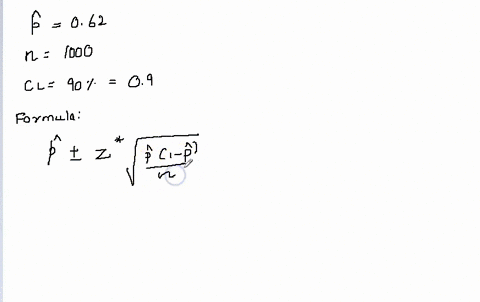 p̂ = 0.62
n = 1000
CL = 90% = 0.9
Formula:
p̂ ± z* √(p̂(1-p̂)/n)